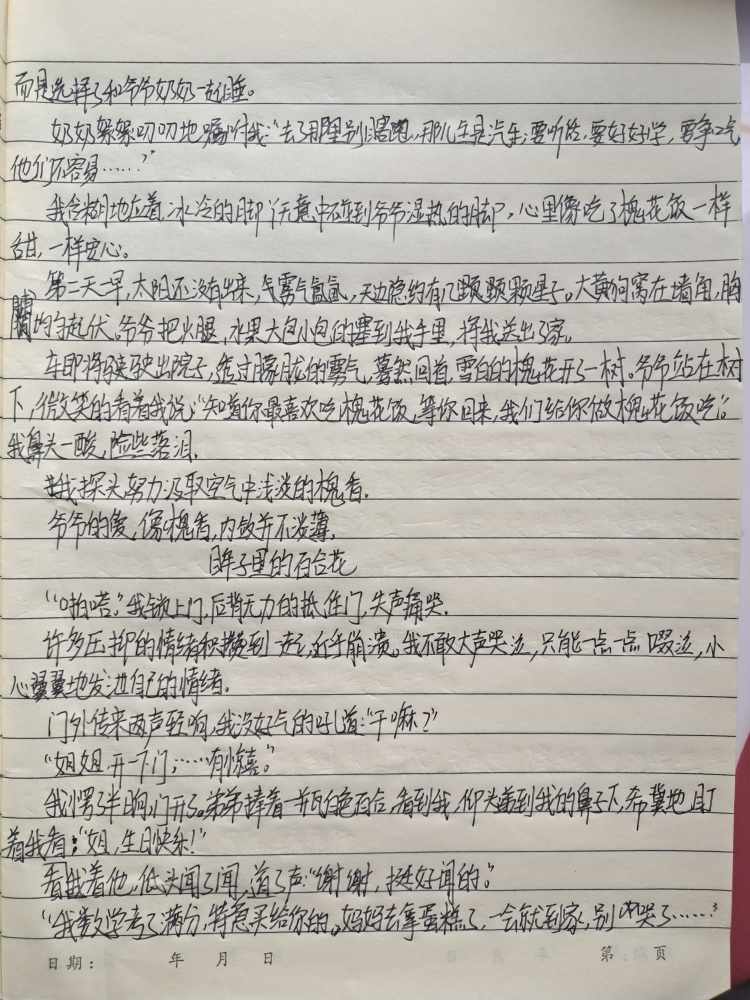 而是选择了和爷爷奶奶一起睡。
奶奶絮絮叨叨地嘱咐我:“去了那里别瞎跑,那儿车是汽车,要听话,要好好学,要争口气
他们不容易……”
我含糊地应着,冰冷的脚丫无意中碰到爷爷湿热的脚,心里像吃了槐花饭一样
甜,一样安心。
第二天一早,太阳还没有出来,雾气氤氲,天边隐约有几颗星子。大黄狗窝在墙角,胸
脯均匀起伏。爷爷把火腿,水果大包小包的塞到我手里,将我送出了家。
车即将驶出院子,透过朦胧的雾气,蓦然回首,雪白的槐花开了一树。爷爷站在树
下,微笑的看着我说:“知道你最喜欢吃槐花饭,等你回来,我们给你做槐花饭吃”。
我鼻头一酸,险些落泪。
我探头努力汲取空气中浅淡的槐香。
爷爷的爱,像槐香,内敛并不淡薄。
眸子里的百合花
“啪嗒。”我锁上门,后背无力的抵住门,失声痛哭。
许多压抑的情绪积攒到一起,近乎崩溃。我不敢大声哭泣,只能一点一点啜泣,小
心翼翼地发泄自己的情绪。
门外传来两声轻响,我没好气的吼道:“干嘛?”
“姐姐,开一下门,……有惊喜。”
我愣了半晌,门开了。弟弟捧着一瓶白色百合,看到我,仰头递到我的鼻子下,希冀地盯
着我看:“姐,生日快乐!”
我看着他,低头闻了闻,道了声:“谢谢,挺好闻的。”
“我数学考了满分,特意买给你的。妈妈去拿蛋糕了,一会就到家,别哭了……”
日期: 年 月 日 第 页